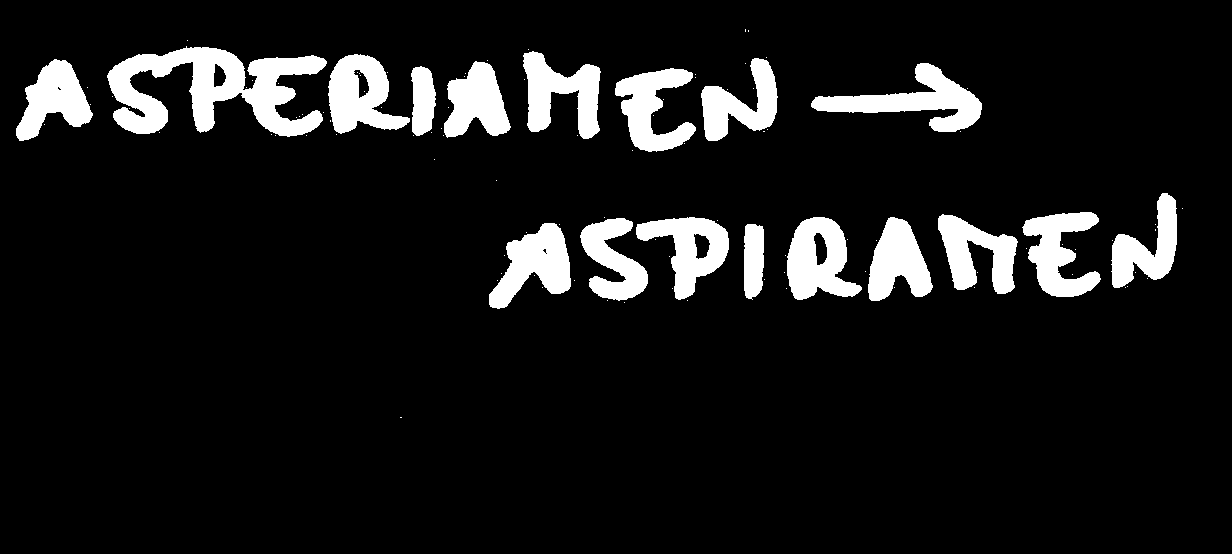 ASPERIAMEN →
ASPIRAMEN